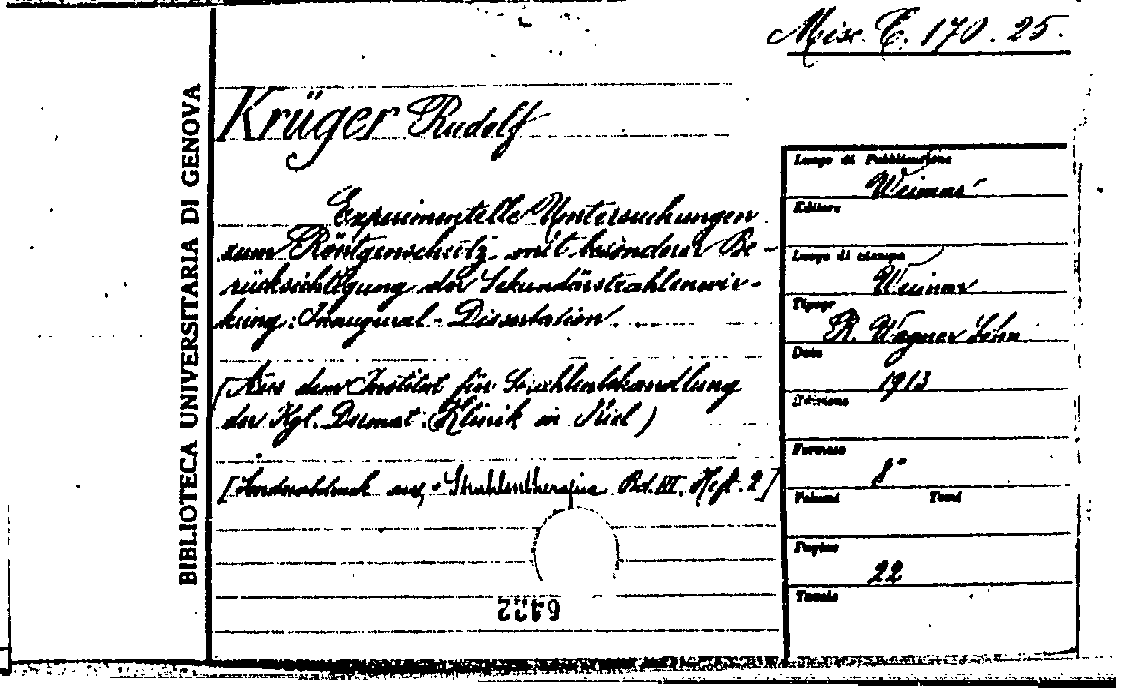 Misc. C. 170. 25.
BIBLIOTECA UNIVERSITARIA DI GENOVA
Krüger Rudolf
Experimentelle Untersuchungen
zum Röntgenschutz mit besonderer Be-
rücksichtigung der Sekundärstrahlenwir-
kung: Inaugural-Dissertation.
(Aus dem Institut für Strahlenbehandlung
der Kgl. Dermat. Klinik in Kiel)
[Sonderabdruck aus "Strahlentherapie Bd. III. Heft. 2]
6422
Luogo di Pubblicazione
Weimar
Editore
Luogo di stampa
Weimar
Tipogr
R. Wagner Sohn
Data
1913
Edizione
Formato
8°
Volumi Tomi
Pagine
22
Tavole